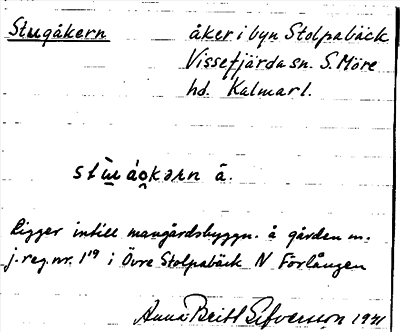 Stugåkern åker i byn Stolpabäck
Vissefjärda sn. S. Möre
hd. Kalmar l.
stù̱ áo̭kərn ā.
Ligger intill mangårdsbyggn. å gården m.
j.reg.nr. 1¹⁹ i Övre Stolpabäck N Förlången
Anna Britt Elfversson 1941